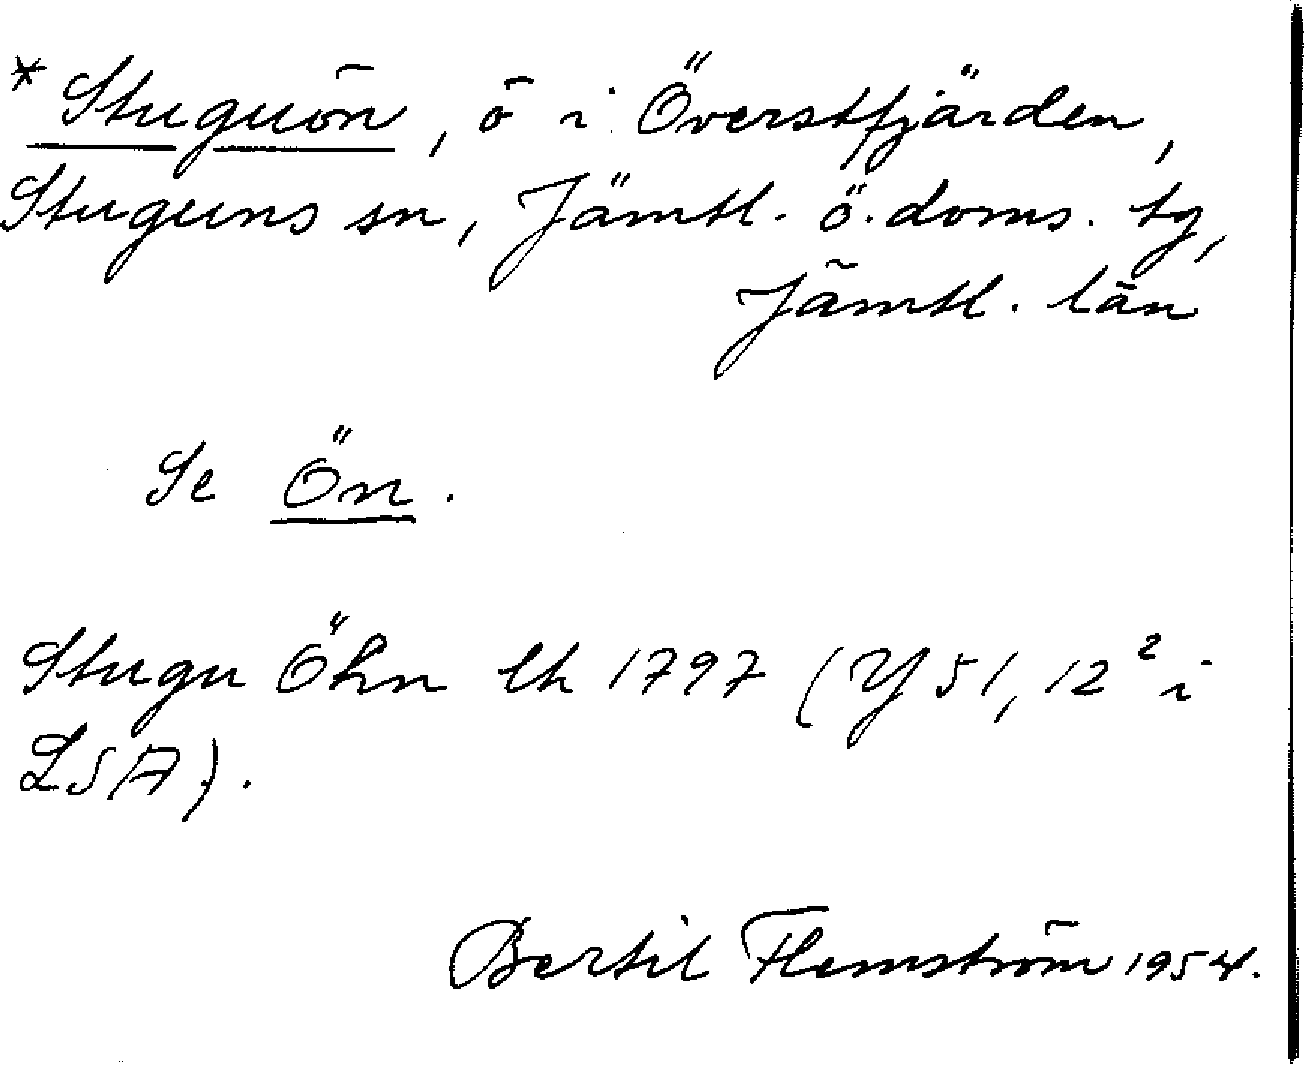 * Stuguön, ö i Överstfjärden,
Stuguns sn, Jämtl. ö. doms. tg,
Jämtl. län
Se Ön.
Stugu Öhn lk 1797 (Y 51, 12² i
LSA).
Bertil Flemström 1954.